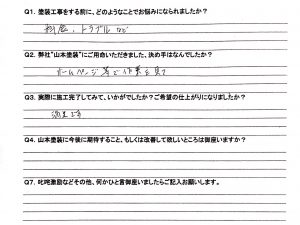 Q1. 塗装工事をする前に、どのようなことでお悩みになられましたか？
料金、トラブルなど
Q2. 弊社“山本塗装”にご用命いただきました、決め手はなんでしたか？
ホームページ等で作業を見て
Q3. 実際に施工完了してみて、いかがでしたか？ご希望の仕上がりになりましたか？
満足です
Q4. 山本塗装に今後に期待すること、もしくは改善して欲しいところは御座いますか？
Q7. 叱咤激励などその他、何かひと言御座いましたらご記入お願いします。